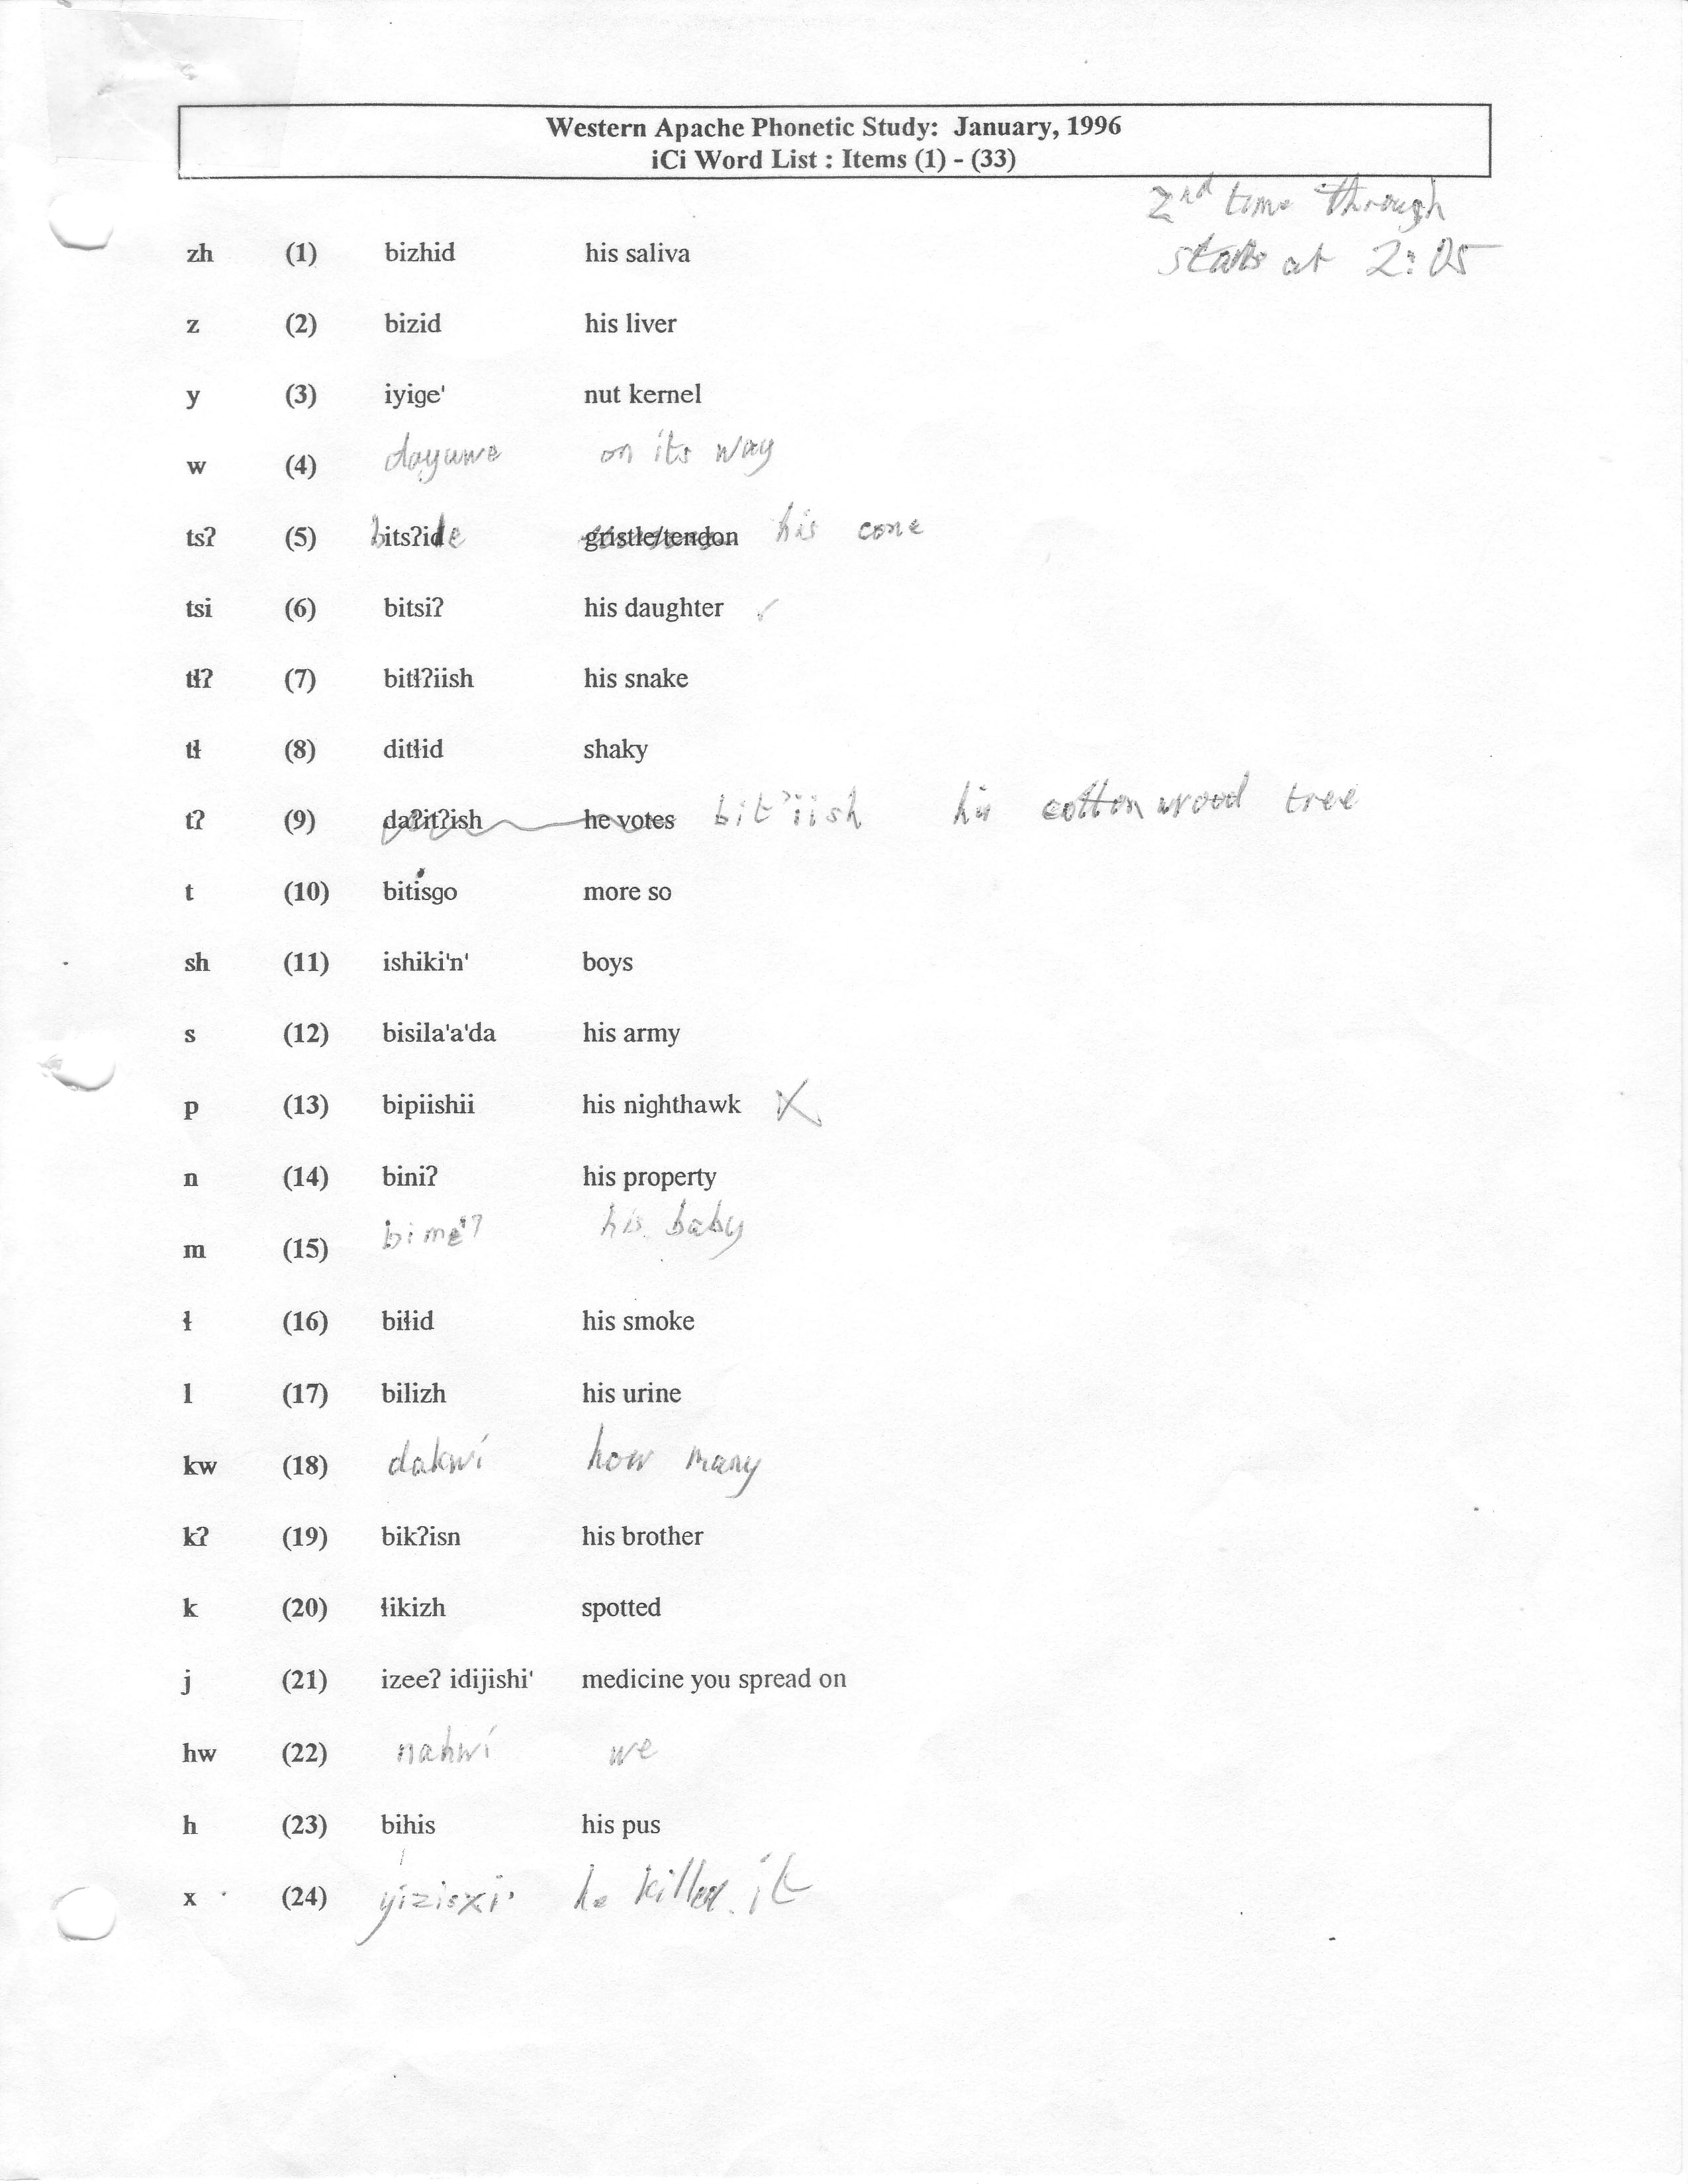 Western Apache Phonetic Study: January, 1996
iCi Word List : Items (1) - (33)
2nd time through
starts at 2:05
zh (1) bizhid his saliva
z (2) bizid his liver
y (3) iyige' nut kernel
w (4) dayuwe on its way
ts? (5) bits?ide gristle/tendon his cone
tsi (6) bitsi? his daughter ✓
tł? (7) bitł?iish his snake
tł (8) ditłid shaky
t? (9) da?it?ish he votes bit'iish his cottonwood tree
t (10) bitísgo more so
sh (11) ishiki'n' boys
s (12) bisila'a'da his army
p (13) bipiishii his nighthawk X
n (14) bini? his property
m (15) bimé? his baby
ł (16) biłid his smoke
l (17) bilizh his urine
kw (18) dakwí how many
k? (19) bik?isn his brother
k (20) łikizh spotted
j (21) izee? idijishi' medicine you spread on
hw (22) nahwí we
h (23) bihis his pus
x (24) he killed it